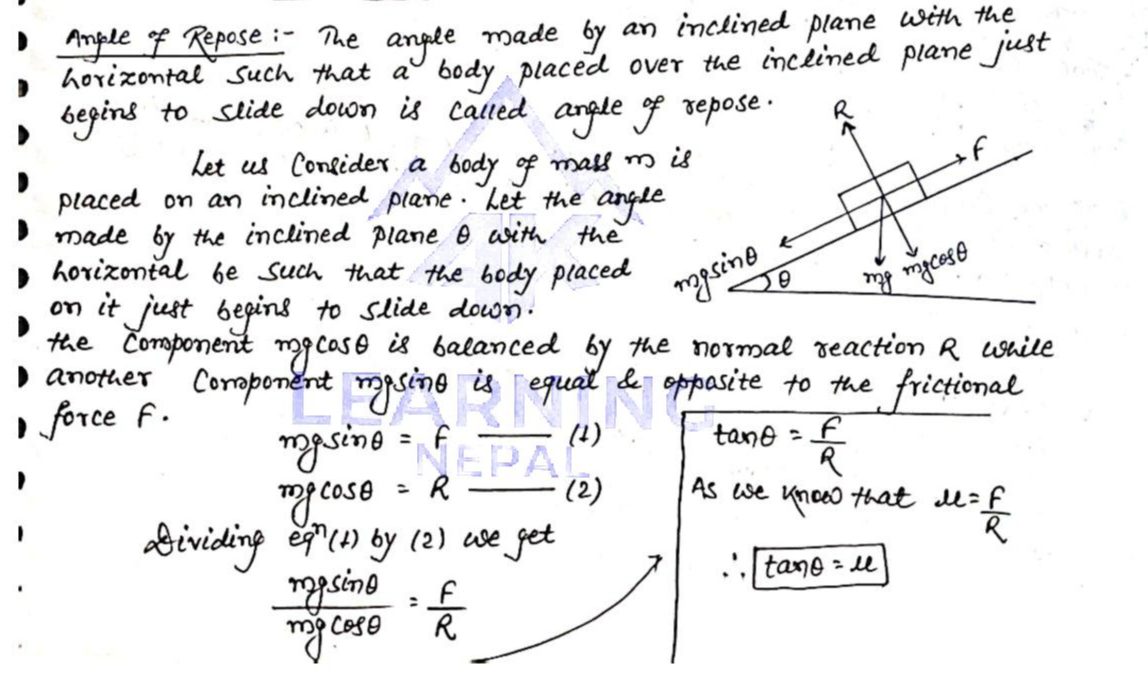 Angle of Repose :- The angle made by an inclined plane with the
horizontal such that a body placed over the inclined plane just
begins to slide down is called angle of repose.
Let us Consider a body of mass m is
placed on an inclined plane. Let the angle
made by the inclined plane θ with the
horizontal be such that the body placed
on it just begins to slide down.
R
F
mgsinθ
θ
mg
mgcosθ
the Component mgcosθ is balanced by the normal reaction R while
another Component mgsinθ is equal & opposite to the frictional
force F.
LEARNING
NEPAL
mgsinθ = F —— (1)
mgcosθ = R —— (2)
Dividing eqⁿ (1) by (2) we get
mgsinθ / mgcosθ = F / R
tanθ = F / R
As we know that μ = F / R
∴ tanθ = μ